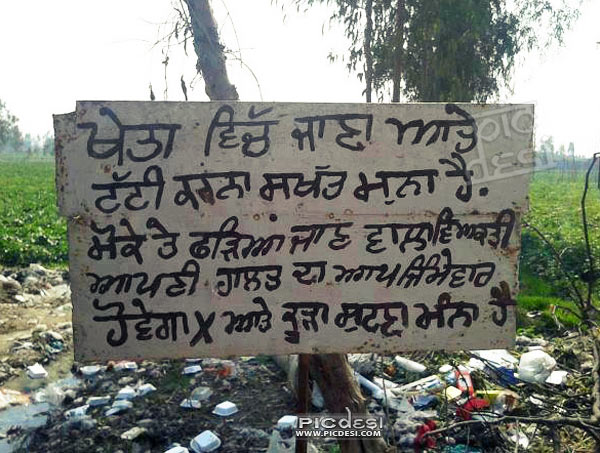 ਖੇਤਾ ਵਿੱਚ ਜਾਣਾ ਆਤੇ
ਟੱਟੀ ਕਰਨਾ ਸਖੱਤ ਮਨਾ ਹੈ.
ਮੌਕੇ ਤੇ ਫੜਿਆਂ ਜਾਣ ਵਾਲਾ ਵਿਅਕਤੀ
ਆਪਣੀ ਹਾਲਤ ਦਾ ਆਪ ਜਿੰਮੇਵਾਰ
ਹੋਵੇਗਾ X ਅਤੇ ਕੂੜਾ ਸੁਟਣਾ ਮੰਨਾ ਹੈ
PICDESI
PICDESI
WWW.PICDESI.COM